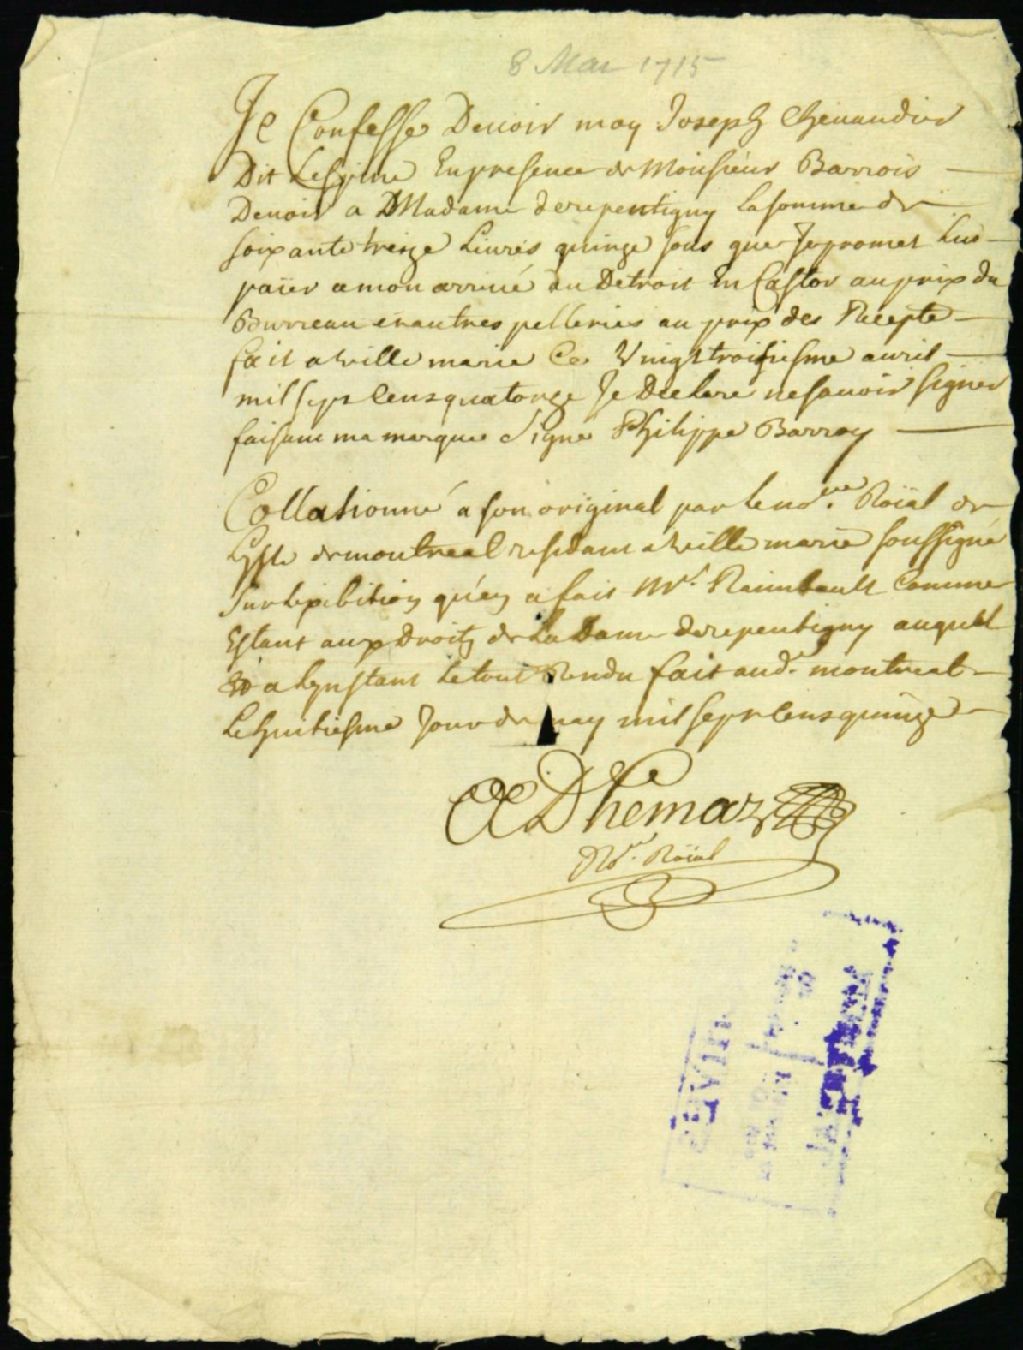 8 Mai 1715
Je Confesse Deuoir moy Joseph Cheuaudier
Dit Lespine En presence de Monsieur Barrois
Deuoir a Madame derepentigny la somme de
soixante treize Liures quinze sous que Je promet Luy
païer a mon arriué au Detroit En Castor au prix du
Burreau et autres pelleries au prix des Recepte
fait a ville marie Ce Vingt troisiesme auril
mil sept Cens quatorze Je Declare ne sauoir signer
faisant ma marque Signé Philippe Barroy
Collationné a son original par le no.re Roïal de
L'isle de montreal residant a ville marie soussigné
sur lexibition qu'en a fait Mr. Raimbault Comme
Estant aux Droits de La Dame derepentigny auquel
a Lynstant le tout Rendu fait aud. montreal
le huitiesme Jour de may mil sept cens quinze
ADhemar
No.re Roïal